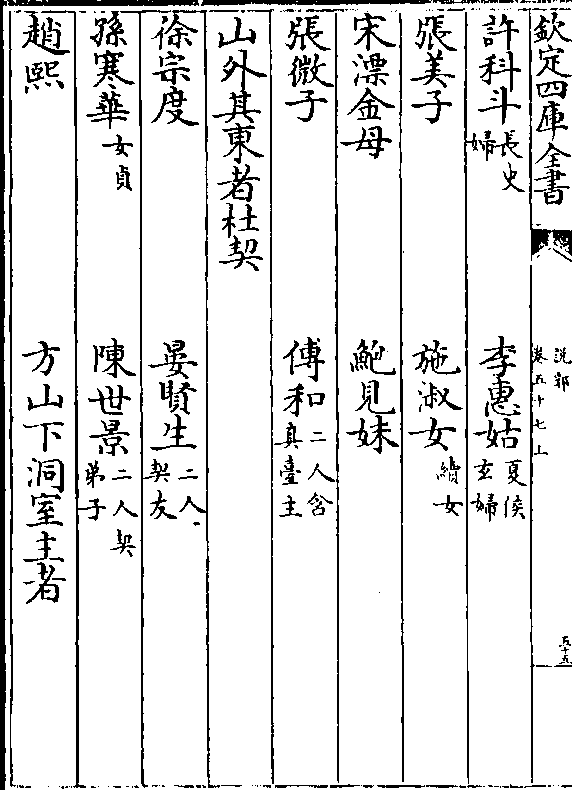 欽定四庫全書
說郛
卷五十七上
五十五
許科斗長史婦 李惠姑夏侯玄婦
張美子 施淑女績女
宋漂金母 鮑見妹
張微子 傅和二人含真臺主
山外其東者杜契
徐宗度 晏賢生二人契友
孫寒華女貞 陳世景二人契弟子
趙熙 方山下洞室主者